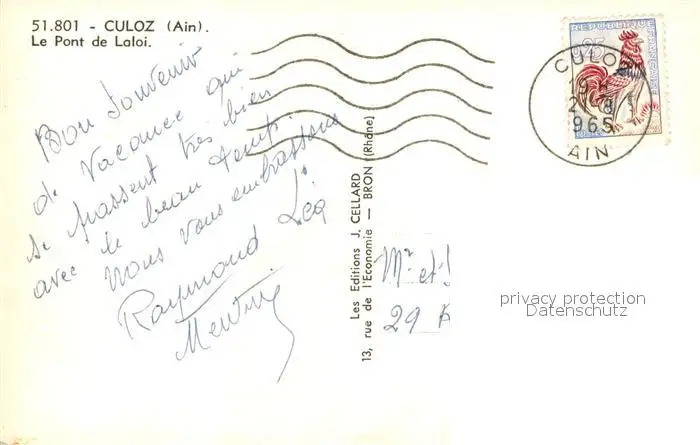 51.801 - CULOZ (Ain).
Le Pont de Laloi.
Bon Souvenir
de Vacance qui
se passent très bien
avec le beau temps
Nous vous embrassons
Raymond Léa
Les Editions J. CELLARD
13, rue de l'Economie — BRON (Rhône)
Mr et
29
REPUBLIQUE FRANÇAISE
0,25
CULOZ
19 H
2 - 8
965
AIN
privacy protection
Datenschutz